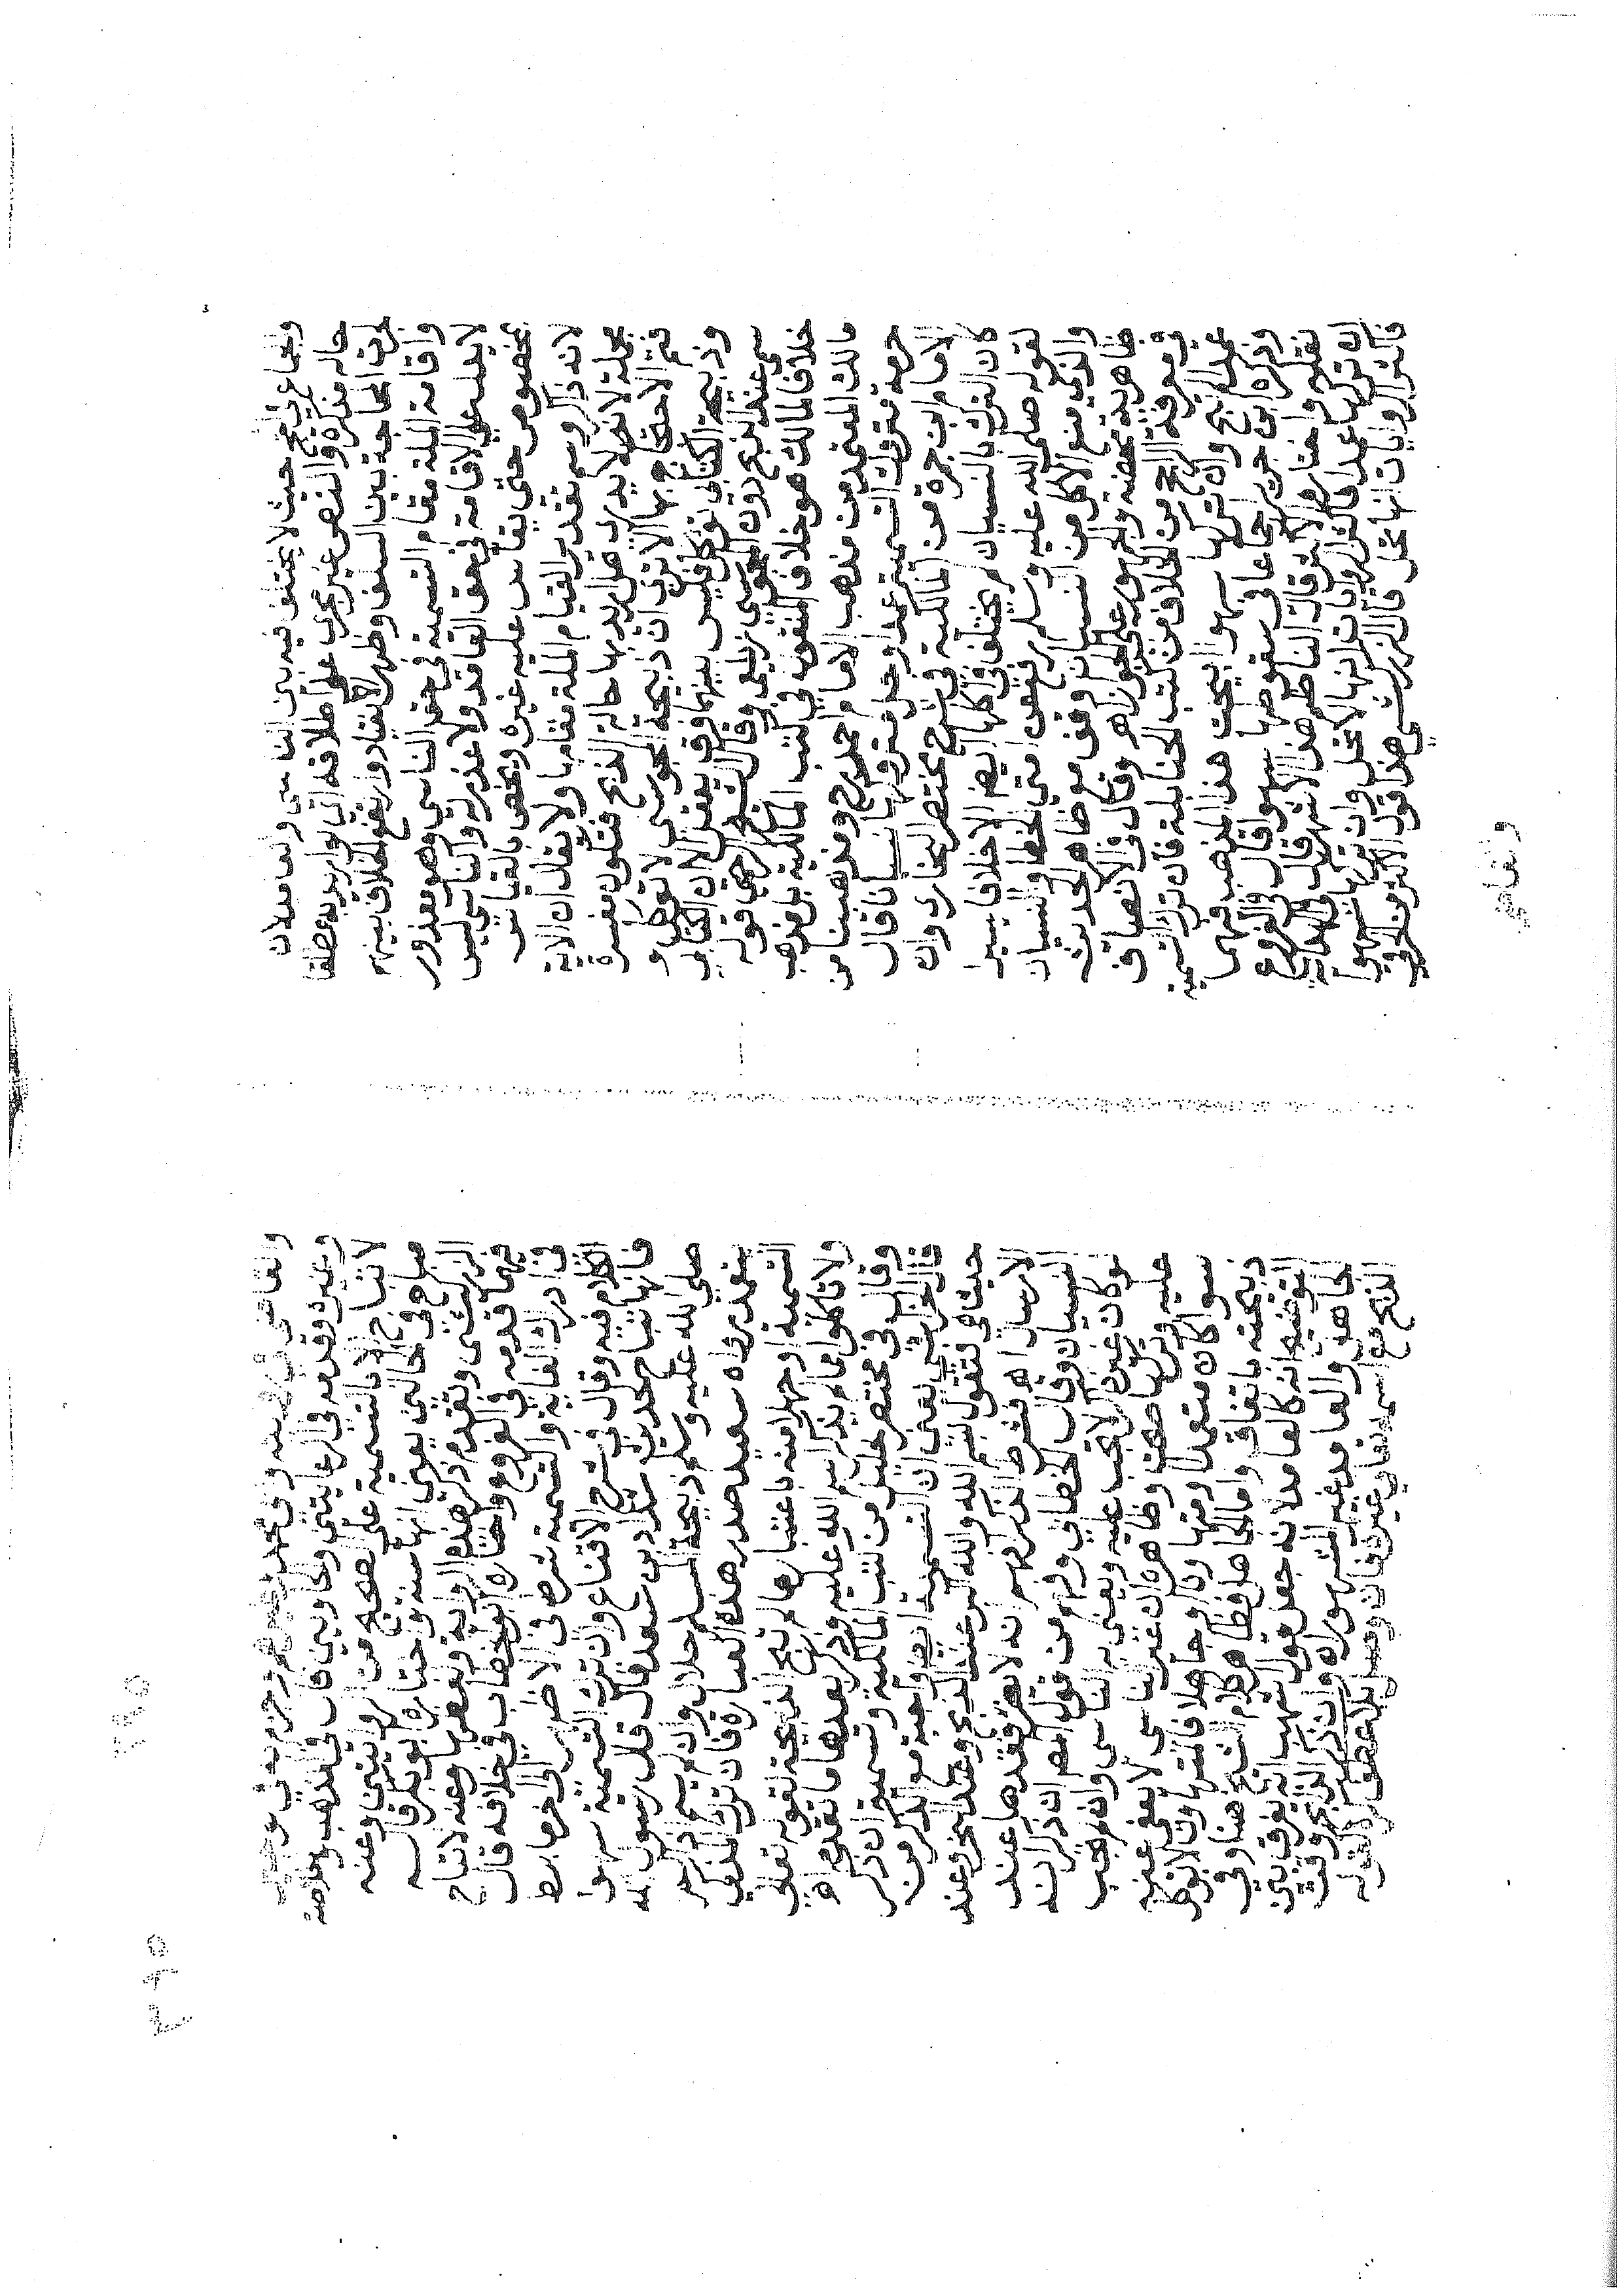 وبها عرف الحج حيث لا يختلف فيه بين الناسي والعامد لان
حاله مذكرة والنص غير مجرى على اطلاقه اذ لو اريد به مطلقا
لجرت المحاجة بين السلف وظهر الانقياد وارتفع الخلاف بينهم
واقامة الملة مقام التسمية في حق الناسي وهو معذور
لا يدل على الاقامة في حق العامد ولا عذر له والناسي ليس
بمخصوص حتى يقاس عليه غيره ويخص بالقياس
لانه ذاكر وسمى تقدير القيام الملة مقامها ولا يقال ان الاية
مجملة لانه لا يدرى هل اريد بها حالة الذبح فتكون مفسرة
فتم الاحتجاج بها الا ترى ان ذبيحة المجوسي لا توكل و
وذبيحة الكتابي توكل فليس بينهما فرق يعقل الا ان الكتابي
يسمي عند الذبح دون المجوسي زيلعي وقال الشيخ الرحبي قوله
خلافا لمالك هو خلاف المنقول في كتب المالكية بل مذهب
مالك المعتمد من مذهب الامام احمد رح ومذهبنا من
حرمة متروك التسمية عمدا وحل متروكها نسيانا قال
الامام ابن جمرة من المالكية في شرح مختصر البخاري وان
كان الترك بالنسيان لم يختلف في اكلها ايضا الا خلافا يسيرا
لقوله صلى الله عليه وسلم رفع عن امتي الخطا والنسيان
والذي منع الاكل من النسيان وقف مع ظاهر الحديث
ظاهرية محضة والجمهور على الجواز اهـ وقال في الانصاف
في معرفة الراجح من الخلاف من كتب الحنابلة فان ترك التسمية
عمدا لم تبح وان تركها سهوا ابيحت هذا المذهب فيهما
وذكره ابن جرير اجماعا في سقوطها سهوا قال في الفروع
نقله واختاره الاكثر قال الناظم هذا الاشهر قال في الهداية
ان تركها عمدا فاكثر الروايات انها لا تحل وان تركها سهوا
فاكثر الروايات انها تحل قال الزركشي هذا قول الاكثرين الخرقي
والقاضي
والقاضي في روايتيه وجزم به في الوجيز
وغيره وقدمه في الرعايتين والحاويين قال في المذهب والخلاصة
لا تباح الا بالتسمية على الصحيح من الروايتين وعنه
مباح في الحالتين يعني انها سنة واختاره ابو بكر قاله
الزركشي وتقدم ذكر هذه الرواية وبعضها وعنه لا تباح
فيهما قدمه في الفروع واختاره ابو الخطاب في خلافه قال
في ادراك الغاية والتسمية شرط في الاظهر الى اخر ما بسط
الكلام فيه وقال في شرح الاقناع وان ترك التسمية سهوا
فانها تباح لحديث شداد بن سعد قال قال رسول الله
صلى الله عليه وسلم ذبيحة المسلم حلال وان لم يسم اذا لم
يتعمد رواه سعيد صدر هذه العبارة فان ترك المذكي
التسمية او جهلا منه باعتبارها لم تبح الذبيحة لقوله تعالى
ولا تاكلوا مما لم يذكر اسم الله عليه وذكر بعدها ما تقدم اهـ
وقال في مختصر خليل من كتب المالكية وتسمية ان ذكر
قال الخراشي يعني ان التسمية ايضا واجبة مع الذكر من
حيث هي فتقول بسم الله والله اكبر عند الذبح وعند النحر وعند
الارسال اهـ فشرط الذكر فهم انه لا يضر فقدها عند
النسيان وقال الحطاب وفهم من قول المص ان ذكر انه
لو كان غير ذاكر لا تجب عليه ويعني به الناسي وان لم تجب
عليه وتركها صحت وظاهره ان غير الناسي لا يعفى عنه
سوا كان متعمدا او متهاونا او جاهلا فالمتهاون لا توكل
ذبيحته باتفاق واما الجاهل فظاهر كلام الشيخ هنا وفي
التوضيح انه كالعامد لانه جعل قول اشهب انه يفرق بين
الجاهل والعامد غير المشهور اهـ وان ذكر الذابح وقت
الذبح مع اسمه تعالى غيره فان وصل بلا عطف كره كقوله